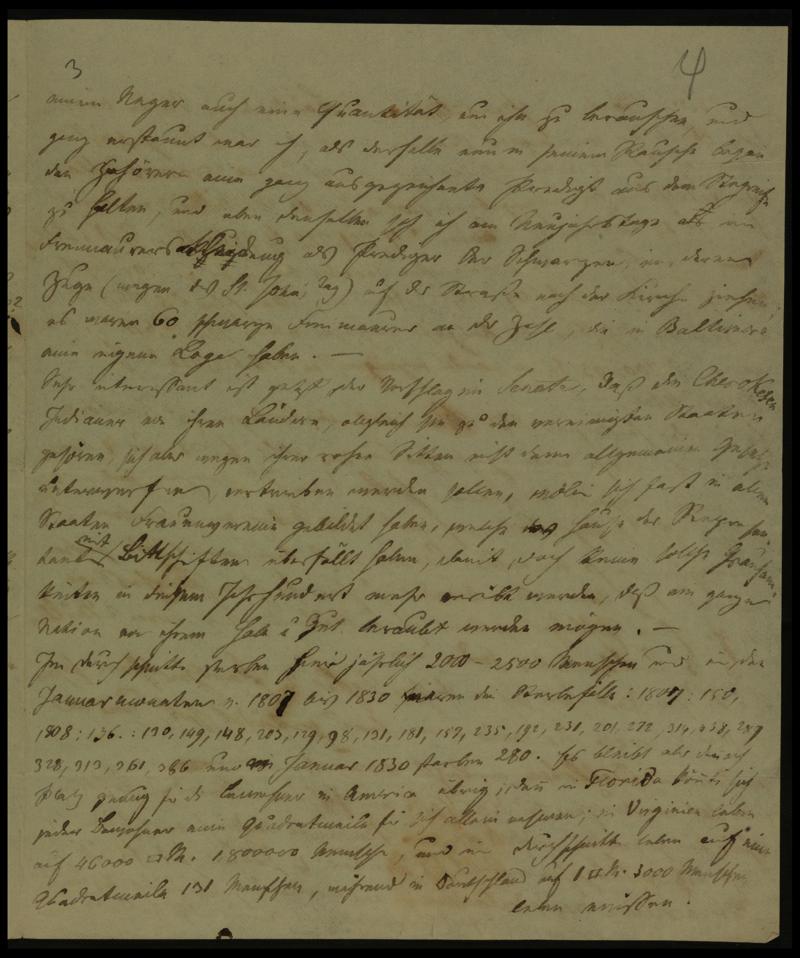 3
4
einem Neger auch eine Quantität, um ihn zu berauschen, und
ganz erstaunt war ich, als derselbe nun in seinem Rausche begann
den Zuhörern eine ganz ausgezeichnete Predigt aus dem Stegreife
zu halten, und eben denselben sah ich am Neujahrstage als in
Freimaurers als Prediger der Schwarzen, in deren
Zuge (wegen des St. Johannis Tag) auf der Strasse nach der Kirche ziehen
es waren 60 schwarze Freimaurer an der Zahl, die in Baltimore
eine eigene Loge haben. —
Sehr interessant ist jetzt der Vorschlag im Senate, daß die Cherokesen
Indianer von ihren Ländern, obgleich sie zu den vereinigten Staaten
gehören, sich aber wegen ihrer rohen Sitten nicht denen allgemeinen Gesetzen
unterwerfen, vertrieben werden sollen, wobei sich fast in allen
Staaten Frauenvereine gebildet haben, welche das Haus der Repräsen-
tanten mit Bittschriften überfüllt haben, damit doch keine solche Grausam-
keiten in diesem Jahrhundert mehr verübt werden, daß eine ganze
Nation von ihrem Hab u Gut beraubt werden mögen. —
Im Durchschnitte sterben hier jährlich 2000 – 2500 Menschen und in den
Januar monaten v. 1807 bis 1830 waren die Sterbefälle: 1807: 150,
1808: 136.: 130, 149, 148, 203, 129, 98, 131, 181, 157, 235, 192, 231, 201, 272, 314, 338, 289
328, 313, 361, 386 und im Januar 1830 starben 280. Es bleibt aber dennoch
Platz genug für die Bewohner in America übrig; denn in Florida könnte sich
jeder Bewohner eine Quadratmeile für sich allein nehmen; in Virginien leben
auf 46000 □M. 1,800000 Menschen, und im Durchschnitte leben auf einer
Quadratmeile 131 Menschen, während in Deutschland auf 1 □M. 3000 Menschen
leben müssen.